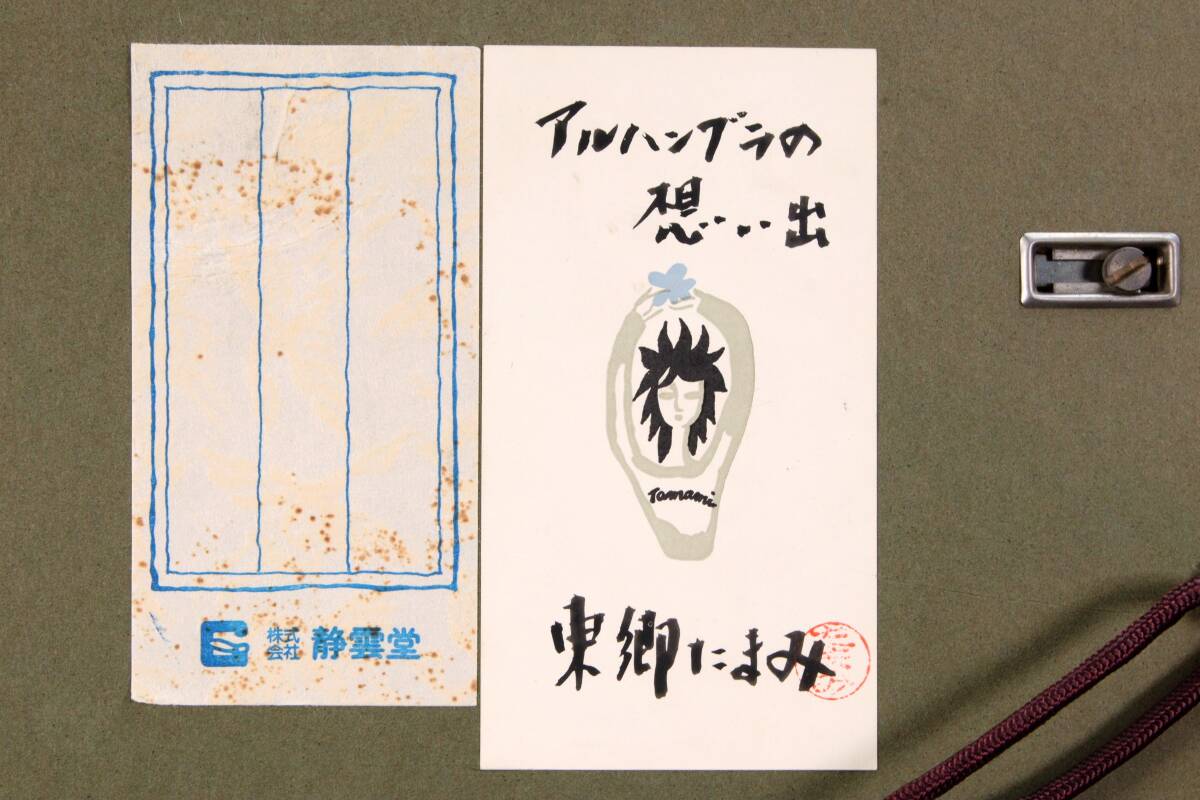 株式
会社 静雲堂
アルハンブラの
想い出
Tamami
東郷たまみ